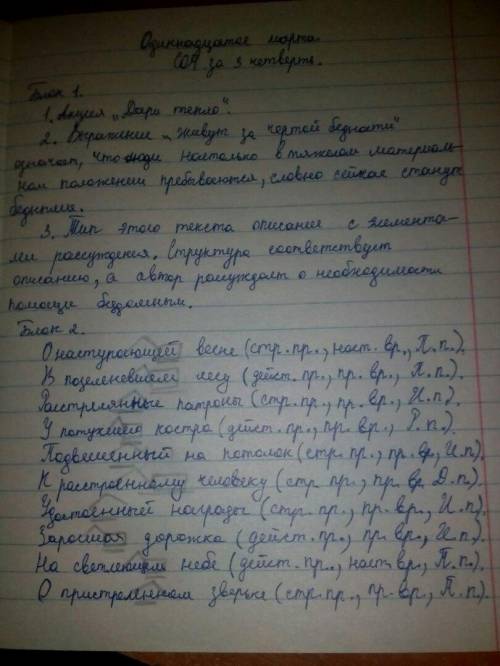 Одиннадцатое марта.
СОР за 3 четверть.
Блок 1.
1. Акция „Дари тепло".
2. Выражение „живут за чертой бедности"
означает, что люди настолько в тяжёлом материаль-
ном положении пребываются, словно сейчас станут
бедными.
3. Тип этого текста описание с элемента-
ми рассуждения. Структура соответствует
описанию, а автор рассуждает о необходимости
помощи бездомным.
Блок 2.
О наступающей весне (стр. пр., наст. вр., П. п.).
В позеленевшем лесу (дейст. пр., пр. вр., П. п.).
Расстрелянные патроны (стр. пр., пр. вр., И. п.).
У потухшего костра (дейст. пр., пр. вр., Р. п.).
Подвешенный на потолок (стр. пр., пр. вр., И. п.).
К расстроенному человеку (стр. пр., пр. вр. Д. п.).
Удостоенный награды (стр. пр., пр. вр., И. п.).
Заросшая дорожка (дейст. пр., пр. вр., И. п.).
На светлеющем небе (дейст. пр., наст. вр., П. п.).
О пристреленном зверьке (стр. пр., пр. вр., П. п.).